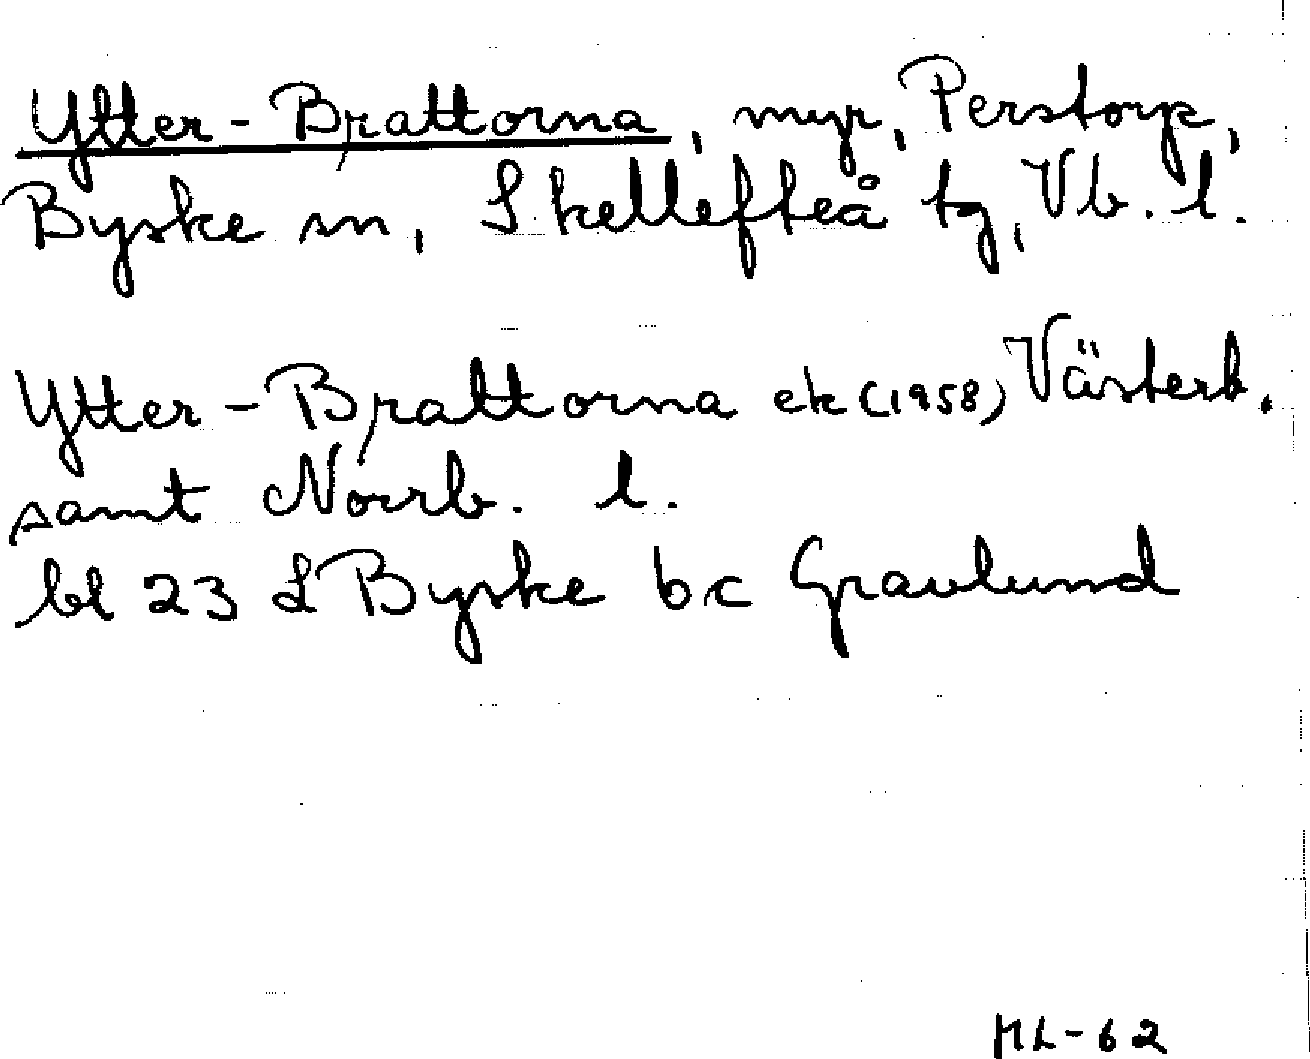 Ytter-Brattorna, myr, Perstorp,
Byske sn, Skellefteå tg, Vb. l.
Ytter-Brattorna ek (1958) Västerb.
samt Norrb. l.
bl 23 L Byske bc Gravlund
ML-62